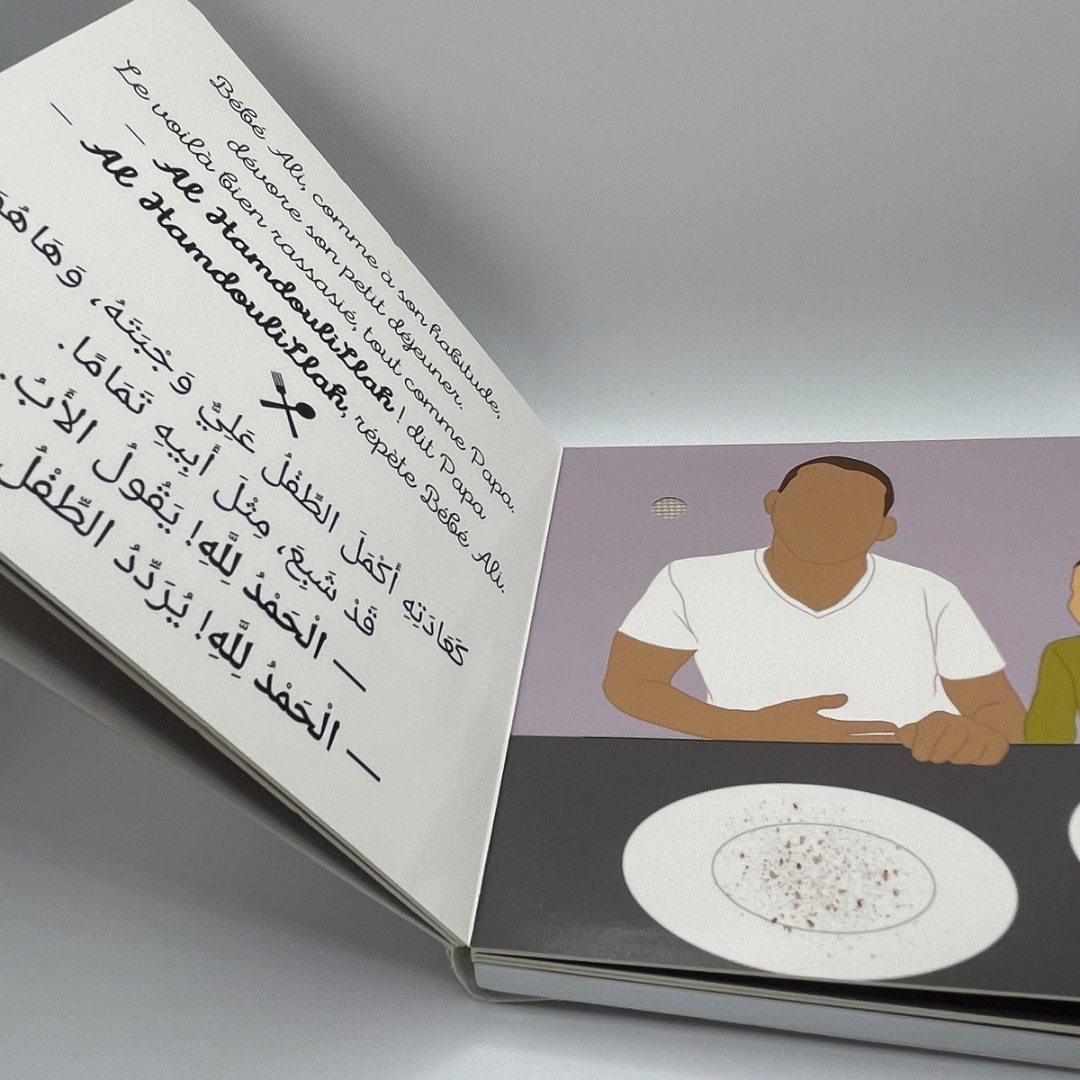 Bébé Ali, comme à son habitude,
dévore son petit déjeuner.
Le voilà bien rassasié, tout comme Papa.
— Al HamdouliLlah ! dit Papa
— Al HamdouliLlah, répète Bébé Ali.
كَعَادَتِهِ أَكْمَلَ الطِّفْلُ عَلِيٌّ وَجْبَتَهُ، وَهَا هُوَ
قَدْ شَبِعَ، مِثْلَ أَبِيهِ تَمَامًا.
— الْحَمْدُ لِلَّهِ! يَقُولُ الأَبُ.
— الْحَمْدُ لِلَّهِ! يُرَدِّدُ الطِّفْلُ